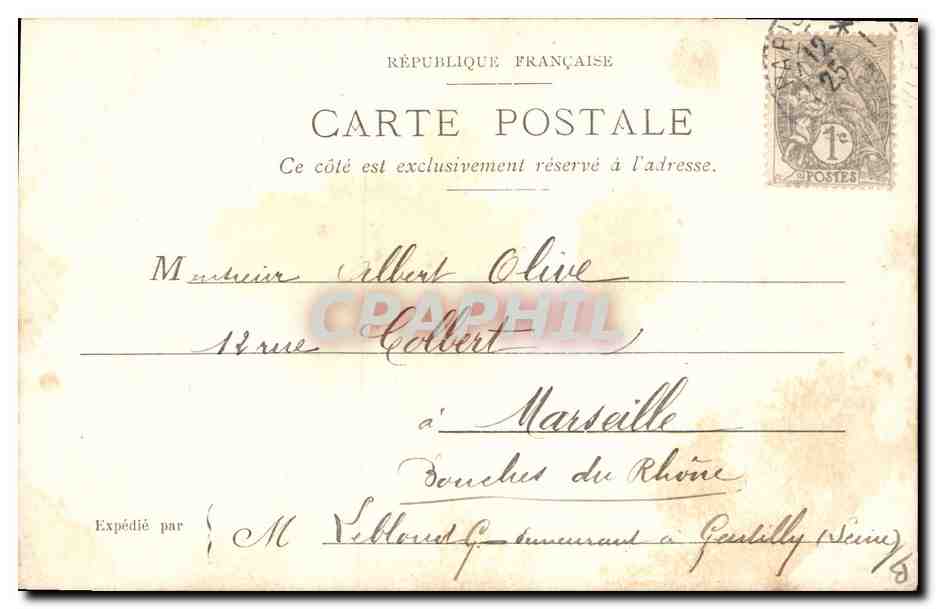 RÉPUBLIQUE FRANÇAISE
CARTE POSTALE
Ce côté est exclusivement réservé à l'adresse.
PARIS
12
25
1c
POSTES
Monsieur Albert Olive
CPAPHIL
12 rue Colbert
à Marseille
Bouches du Rhône
Expédié par M Leblond G demeurant à Gentilly (Seine)